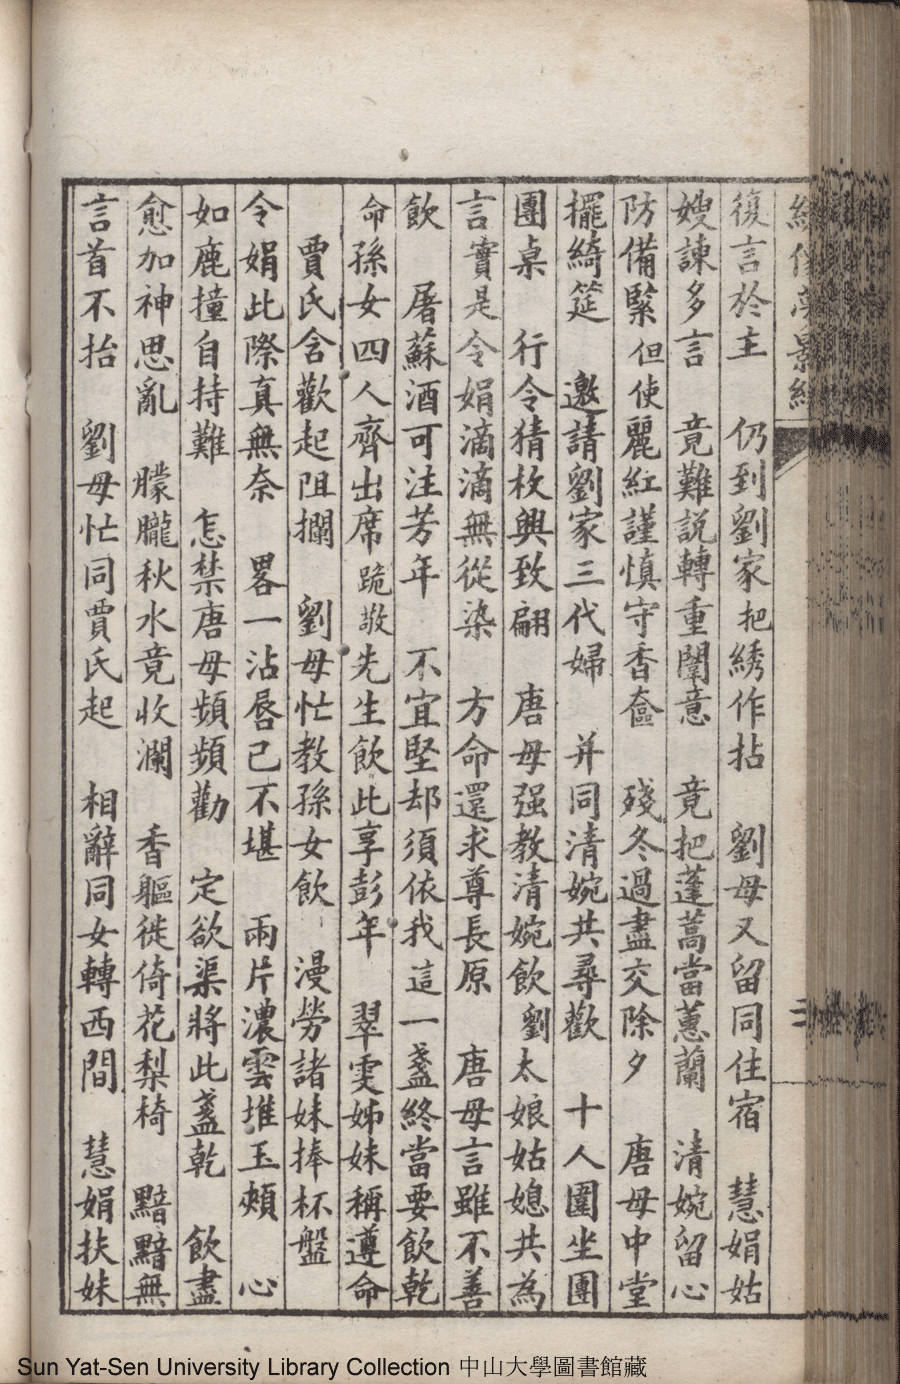 復言於主　仍到劉家把綉作拈　劉母又留同住宿　慧娟姑
嫂諫多言　竟難説轉重闈意　竟把蓬蒿當蕙蘭　清婉留心
防備緊但使麗紅謹慎守香奩　殘冬過盡交除夕　唐母中堂
擺綺筵　邀請劉家三代婦　并同清婉共尋歡　十人圍坐團
團桌　行令猜枚興致翩　唐母强教清婉飲劉太娘姑媳共為
言實是令娟滴滴無從染　方命還求尊長原　唐母言雖不善
飲　屠蘇酒可注芳年　不宜堅却須依我這一盞終當要飲乾
命孫女四人齊出席跪敬先生飲此享彭年　翠雯姊妹稱遵命
賈氏含歡起阻攔　劉母忙教孫女飲　漫勞諸妹捧杯盤
令娟此際真無奈　畧一沾唇已不堪　兩片濃雲堆玉頰　心
如鹿撞自持難　怎禁唐母頻頻勸　定欲渠將此盞乾　飲盡
愈加神思亂　朦朧秋水竟收瀾　香軀徙倚花梨椅　黯黯無
言首不抬　劉母忙同賈氏起　相辭同女轉西間　慧娟扶妹
三
Sun Yat-Sen University Library Collection 中山大學圖書館藏